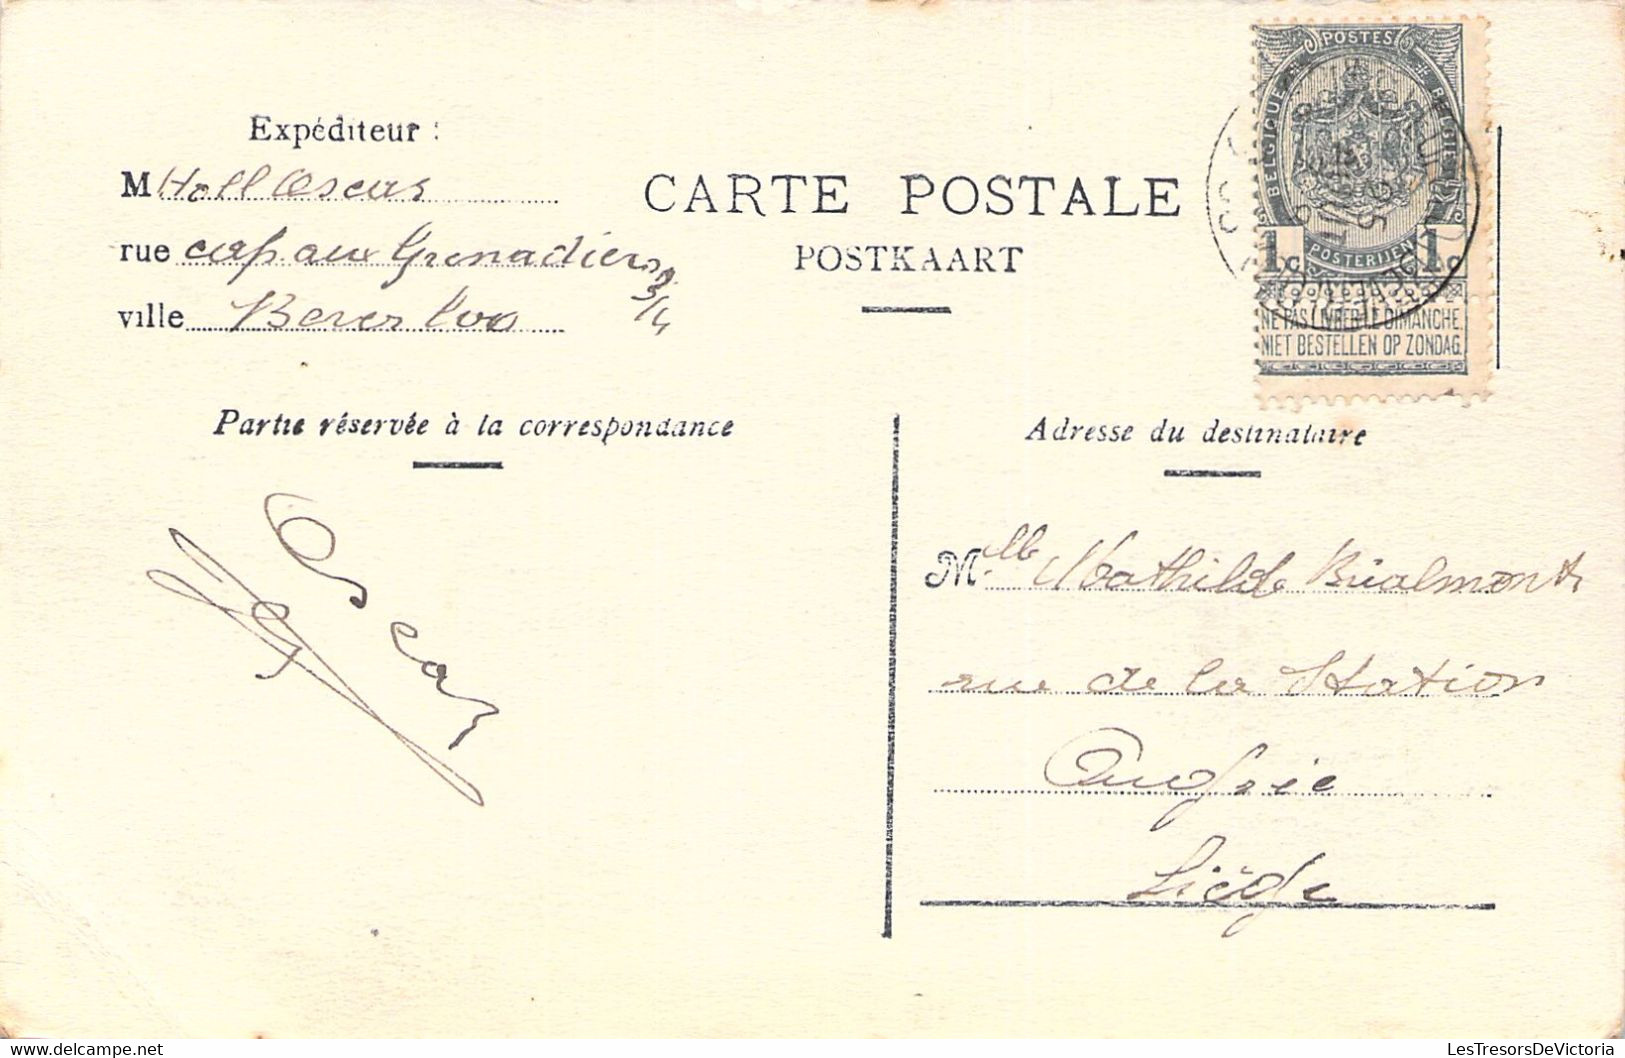 Expéditeur :
M Holl Oscar
rue cap aux Grenadiers
3/4
ville Beverloo
CARTE POSTALE
POSTKAART
POSTES
BELGIQUE
BELGIË
1c
POSTERIJEN
1c
NE PAS LIVRER LE DIMANCHE.
NIET BESTELLEN OP ZONDAG.
Partie réservée à la correspondance
Adresse du destinataire
Oscar
Melle Mathilde Brialmont
rue de la Station
Liège
LesTresorsDeVictoria